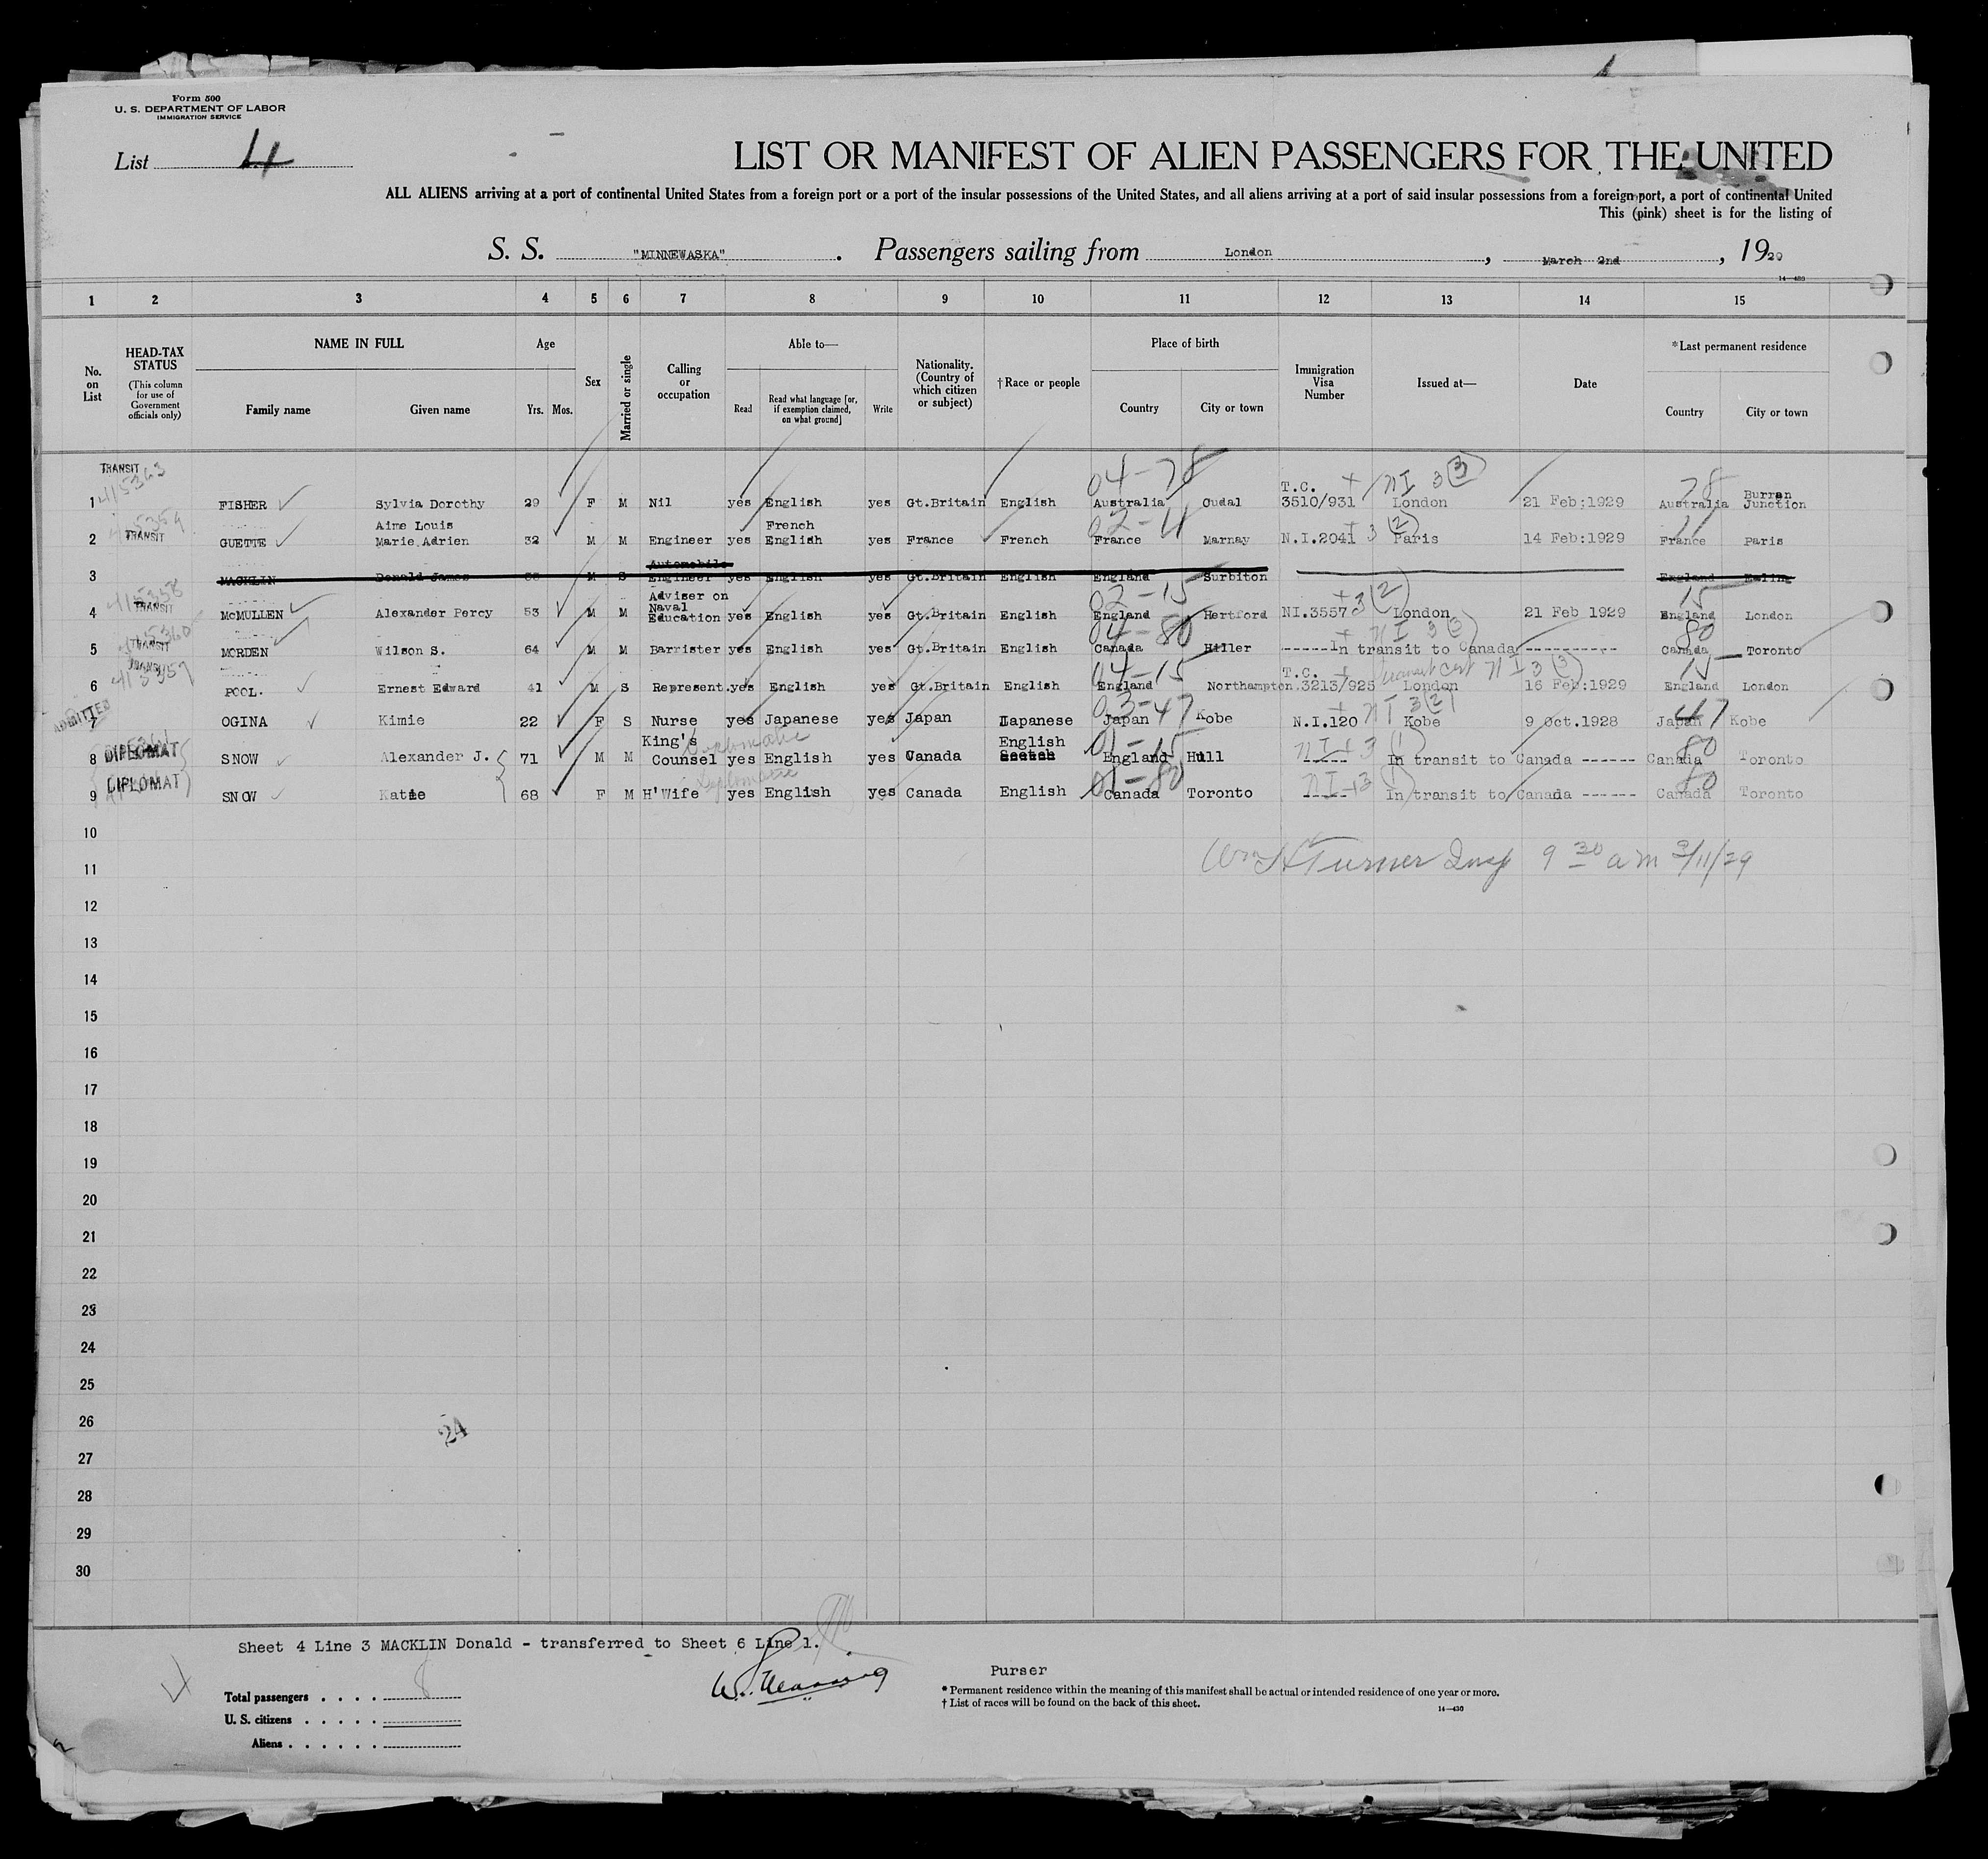 Form 500
U. S. DEPARTMENT OF LABOR
IMMIGRATION SERVICE
List 4
LIST OR MANIFEST OF ALIEN PASSENGERS FOR THE UNITED
ALL ALIENS arriving at a port of continental United States from a foreign port or a port of the insular possessions of the United States, and all aliens arriving at a port of said insular possessions from a foreign port, a port of continental United
This (pink) sheet is for the listing of
S. S. "MINNEWASKA". Passengers sailing from London, March 2nd, 1929
14—430
1 2 3 4 5 6 7 8 9 10 11 12 13 14 15
No. on List
HEAD-TAX STATUS
(This column for use of Government officials only)
NAME IN FULL
Family name Given name
Age
Yrs. Mos.
Sex
Married or single
Calling or occupation
Able to—
Read
Read what language [or, if exemption claimed, on what ground]
Write
Nationality. (Country of which citizen or subject)
†Race or people
Place of birth
Country City or town
Immigration Visa Number
Issued at—
Date
*Last permanent residence
Country City or town
TRANSIT 415363
04-78 T.C. + NI 3 (3) 78 Burren
1 FISHER Sylvia Dorothy 29 F M Nil yes English yes Gt.Britain English Australia Cudal 3510/931 London 21 Feb:1929 Australia Junction
Aime Louis French 02-11 3 (2) 11
2 TRANSIT GUETTE Marie Adrien 32 M M Engineer yes English yes France French France Marnay N.I.2041 Paris 14 Feb:1929 France Paris
Automobile
3 MACKLIN Donald James M S Engineer yes English yes Gt.Britain English England Surbiton England Ealing
415358 Adviser on 02-15 + 3 (2) 15
4 TRANSIT McMULLEN Alexander Percy 53 M M Naval Education yes English yes Gt.Britain English England Hertford NI.3557 London 21 Feb 1929 England London
415360 04-80 + NI 3 80
5 TRANSIT MORDEN Wilson S. 64 M M Barrister yes English yes Gt.Britain English Canada Hiller -----In transit to Canada---------- Canada Toronto
TRANSIT 415357 04-15 T.C. + Transit Cert NI 3 (3) 15
6 POOL. Ernest Edward 41 M S Represent. yes English yes Gt.Britain English England Northampton 3213/925 London 16 Feb:1929 England London
ADMITTED 03-47 + NI 3 (2) 47
7 OGINA Kimie 22 F S Nurse yes Japanese yes Japan Japanese Japan Kobe N.I.120 Kobe 9 Oct.1928 Japan Kobe
King's Diplomatic English 01-15 NI + 3 (1) 80
8 DIPLOMAT SNOW Alexander J. 71 M M Counsel yes English yes Canada Scotch England Hull ----- In transit to Canada ------ Canada Toronto
Diplomatic 01-80 NI + 3 80
9 DIPLOMAT SNOW Katie 68 F M H'Wife yes English yes Canada English Canada Toronto ----- In transit to Canada ------ Canada Toronto
10
Wm H Turner Insp 9 30 am 3/11/29
11
12
13
14
15
16
17
18
19
20
21
22
23
24
25
26
24
27
28
29
30
Sheet 4 Line 3 MACKLIN Donald - transferred to Sheet 6 Line 1.
Purser
Total passengers . . . . 8
U. S. citizens . . . . .
Aliens . . . . . .
* Permanent residence within the meaning of this manifest shall be actual or intended residence of one year or more.
† List of races will be found on the back of this sheet.
14—430